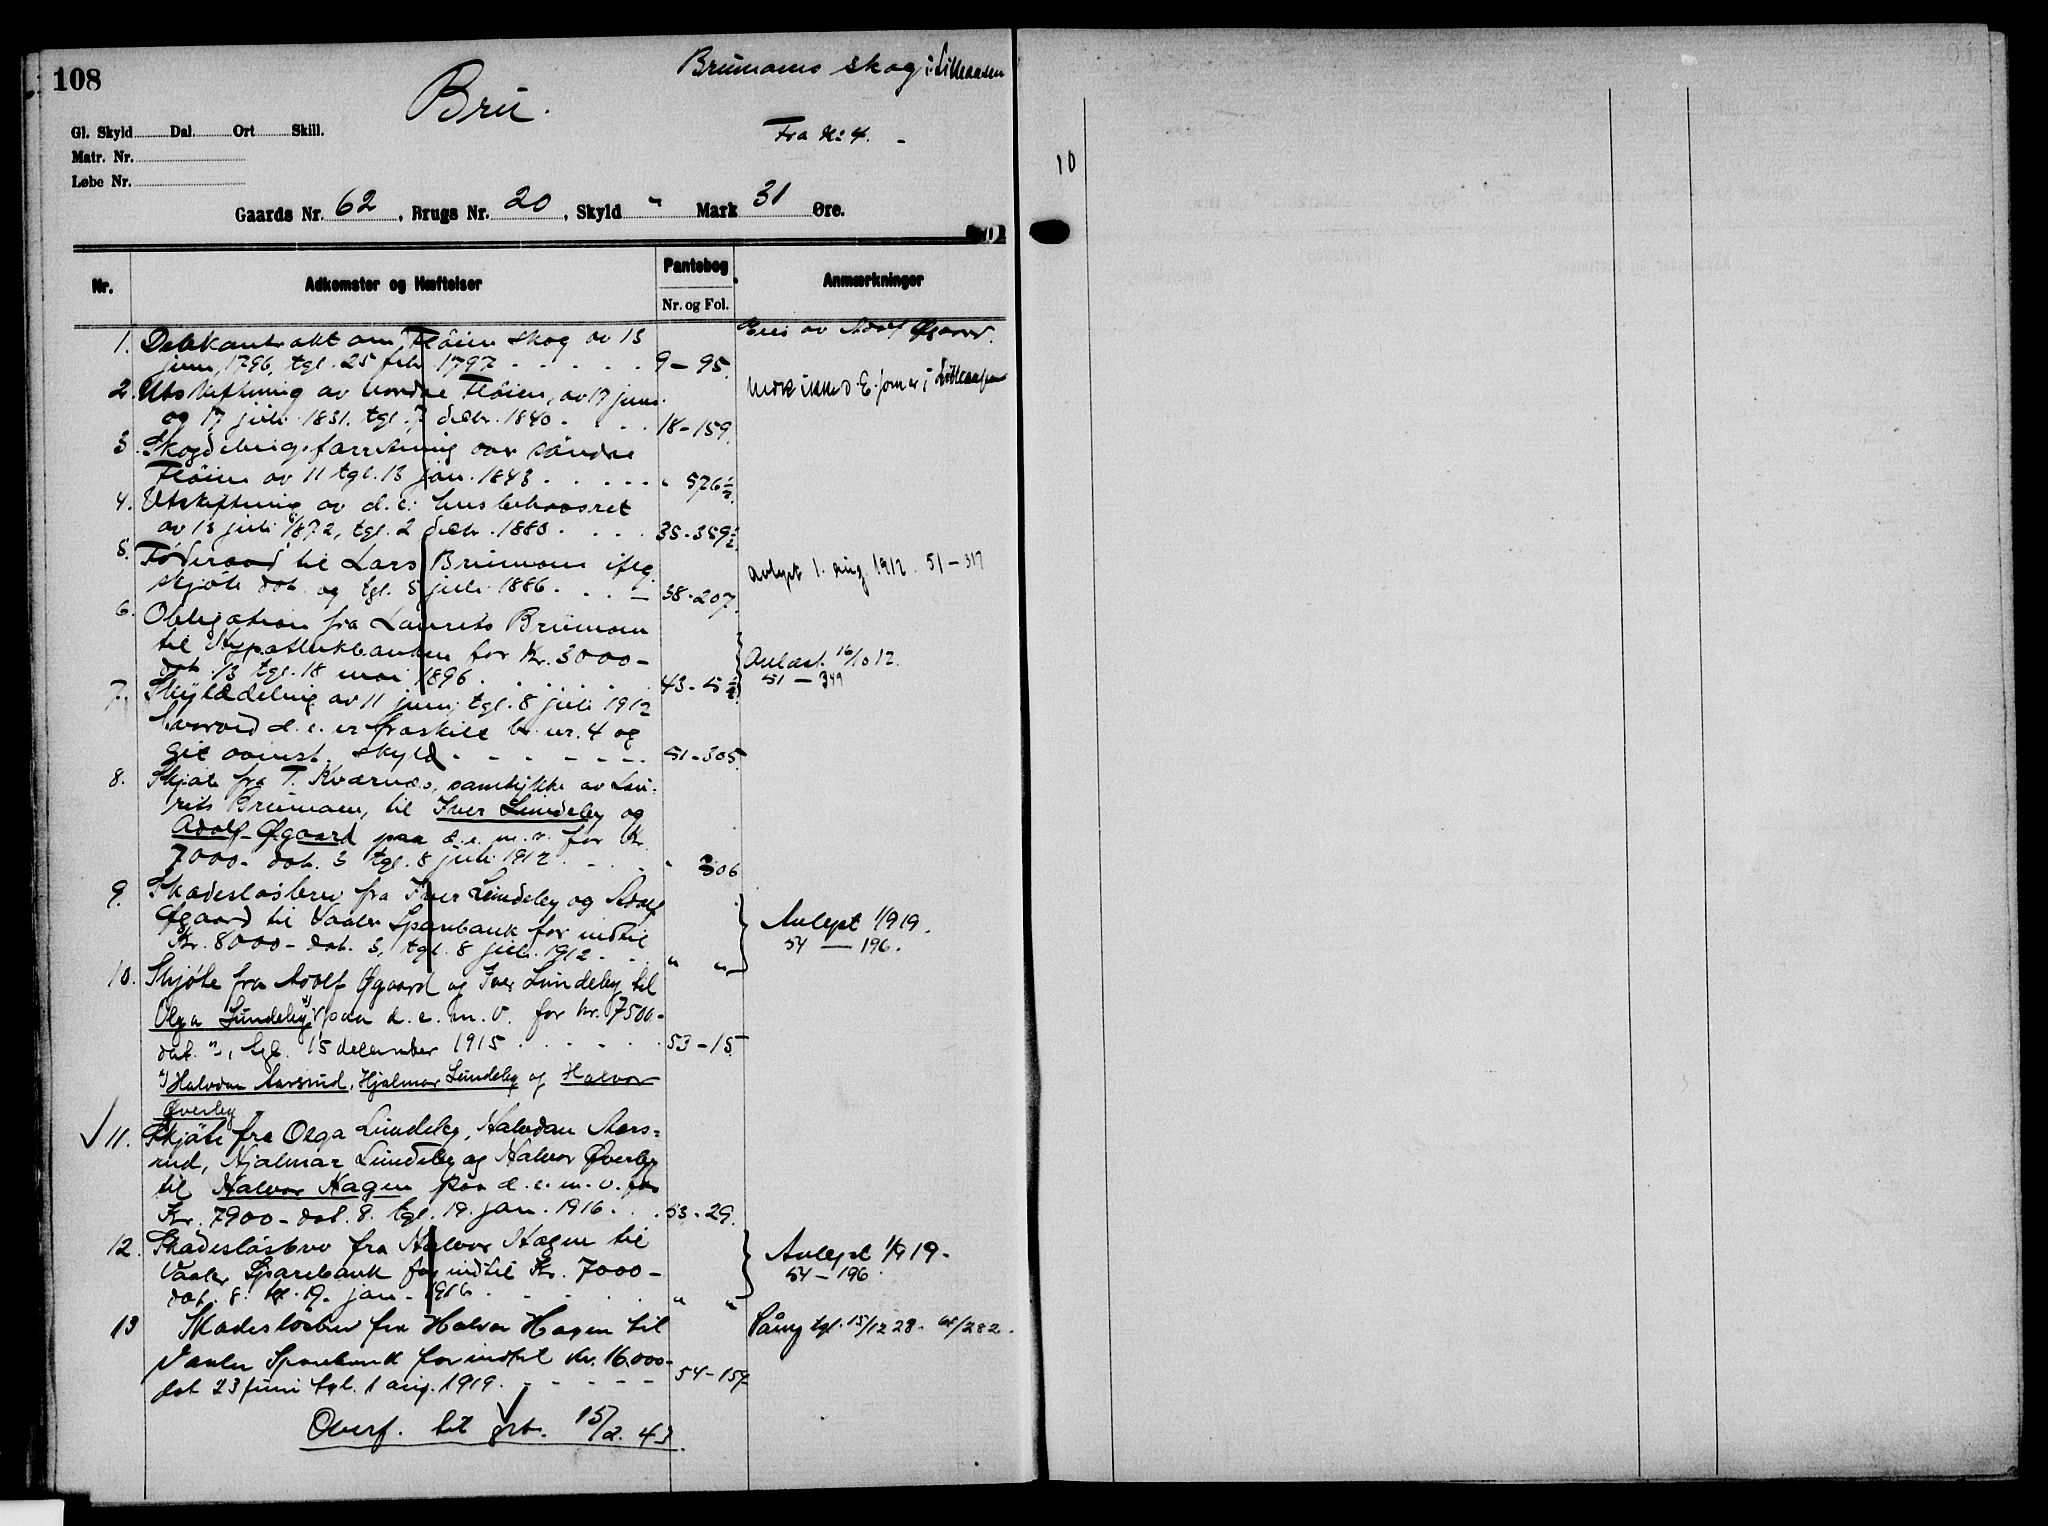 108
Bru.
Brumoens skog i Lilleaasen
Gl. Skyld Dal. Ort Skill.
Fra No 4. -
Matr. Nr.
Løbe Nr.
10
Gaards Nr. 62, Brugs Nr. 20, Skyld " Mark 31 Øre.
Nr.
Adkomster og Hæftelser
Pantebog
Nr. og Fol.
Anmærkninger
1. Delekontrakt om Fløien skog av 13
juni 1796, tgl. 25 febr. 1797 9-95.
Eies av Adolf Øgaard.
2. Utskiftning av nordre Fløien, av 17 juni
og 17 juli 1831. tgl. 7 decbr. 1840. 18-159.
Merk ikke d. E. som er i Lilleaasen
3. Skogdelingsforretning over søndre
Fløien av 11 tgl. 13 jan. 1843. " 576½.
4. Utskiftning av d. e. husbehovsret
av 13 juli 1872, tgl. 2 decbr. 1880. 35-359½.
5. Føderaad til Lars Brumoen iflg.
skjøte dat. og tgl. 5 juli 1886. 38-207.
Avlyst 1. aug. 1912. 51-317
6. Obligation fra Laurits Brumoen
til Hypothekbanken for Kr. 3000-
dat. 13 tgl. 18 mai 1896. 43-5½.
Avlæst 16/10 12.
51-349
7. Skylddeling av 11 juni, tgl. 8 juli 1912
hvorved d. e. er fraskilt br. nr. 4 og
git ovenst. skyld 51-305.
8. Skjøte fra T. Kværnæs, samtykke av Lau-
rits Brumoen, til Iver Lundeby og
Adolf Øgaard paa d. e. m. v. for Kr.
7000- dat. 3 tgl. 8 juli 1912. " 306
9. Skadesløsbrev fra Iver Lundeby og Adolf
Øgaard til Vaaler Sparebank for indtil
Kr. 8000- dat. 3, tgl. 8 juli 1912. " "
Avlyst 1/9 19.
54-196.
10. Skjøte fra Adolf Øgaard og Iver Lundeby til
Olga Lundeby paa d. e. m. v. for kr. 7500-
dat. ", tgl. 15 december 1915 53-15.
Halvdan Aarsrud, Hjalmar Lundeby og Halvor
Øverby
11. Skjøte fra Olga Lundeby, Halvdan Aars-
rud, Hjalmar Lundeby og Halvor Øverby
til Halvor Hagen paa d. e. m. v. for
Kr. 7900- dat. 8. tgl. 19. jan. 1916. 53-29.
12. Skadesløsbrev fra Halvor Hagen til
Vaaler Sparebank for indtil Kr. 7000-
dat. 8. tgl. 19. jan. 1916. " "
Avlyst 1/9 19-
54-196.
13 Skadesløsbrev fra Halvor Hagen til
Vaaler Sparebank for indtil Kr. 16.000-
dat 23 juni tgl. 1 aug. 1919. 54-157
tgl. 15/12 28.
Overf. til grb. 15/2. 43.